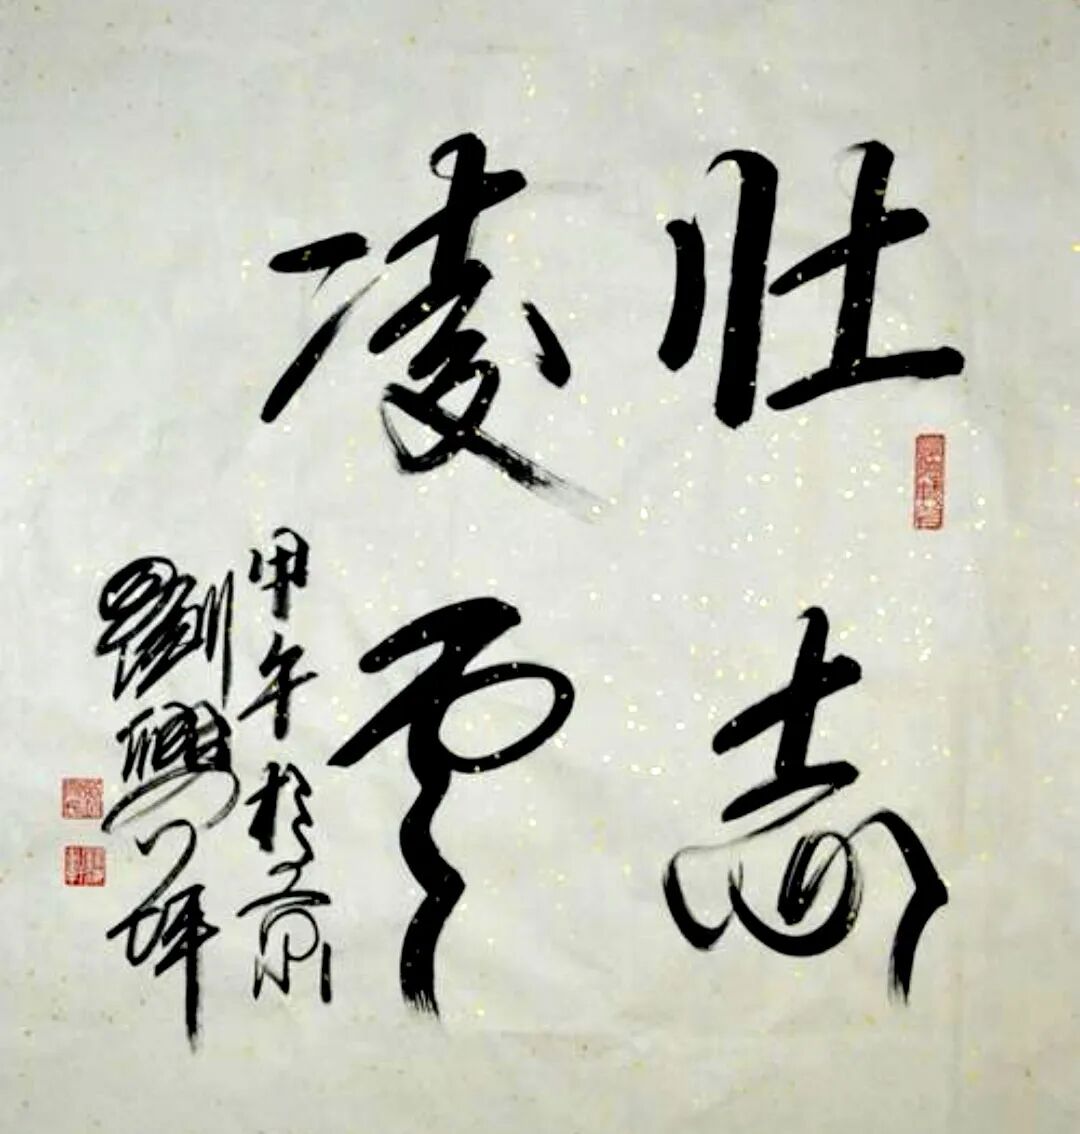 壮志
凌云
甲午於京
劉